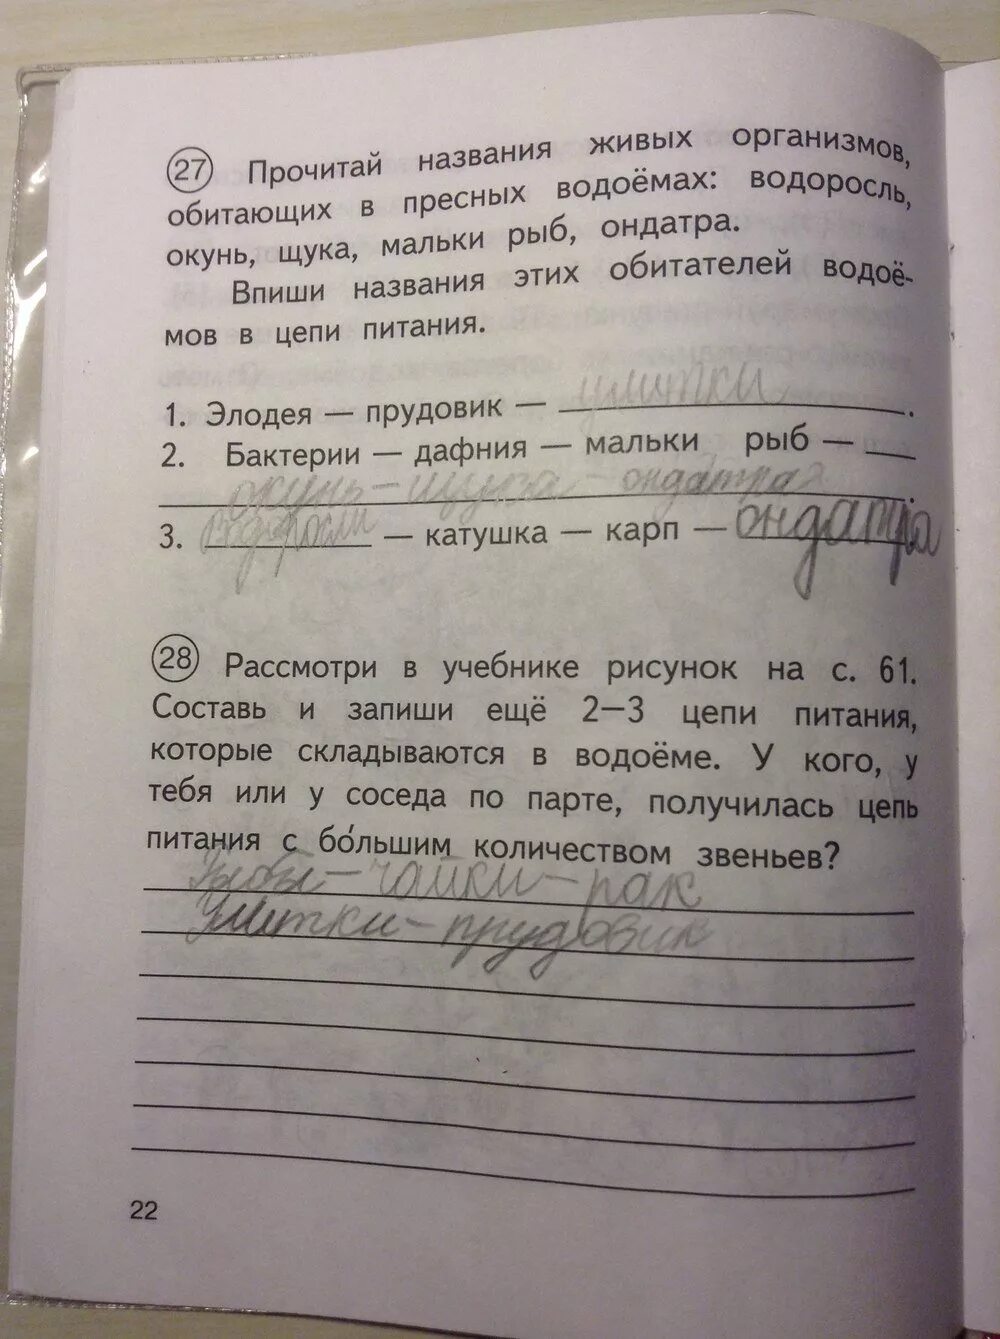 27 Прочитай названия живых организмов,
обитающих в пресных водоёмах: водоросль,
окунь, щука, мальки рыб, ондатра.
Впиши названия этих обитателей водоё-
мов в цепи питания.
1. Элодея — прудовик — улитки.
2. Бактерии — дафния — мальки рыб —
окунь – щука – ондатра.
3. водоросли — катушка — карп — ондатра
28 Рассмотри в учебнике рисунок на с. 61.
Составь и запиши ещё 2—3 цепи питания,
которые складываются в водоёме. У кого, у
тебя или у соседа по парте, получилась цепь
питания с бо́льшим количеством звеньев?
Рыбы – чайки – рак
Улитки – прудовик
22